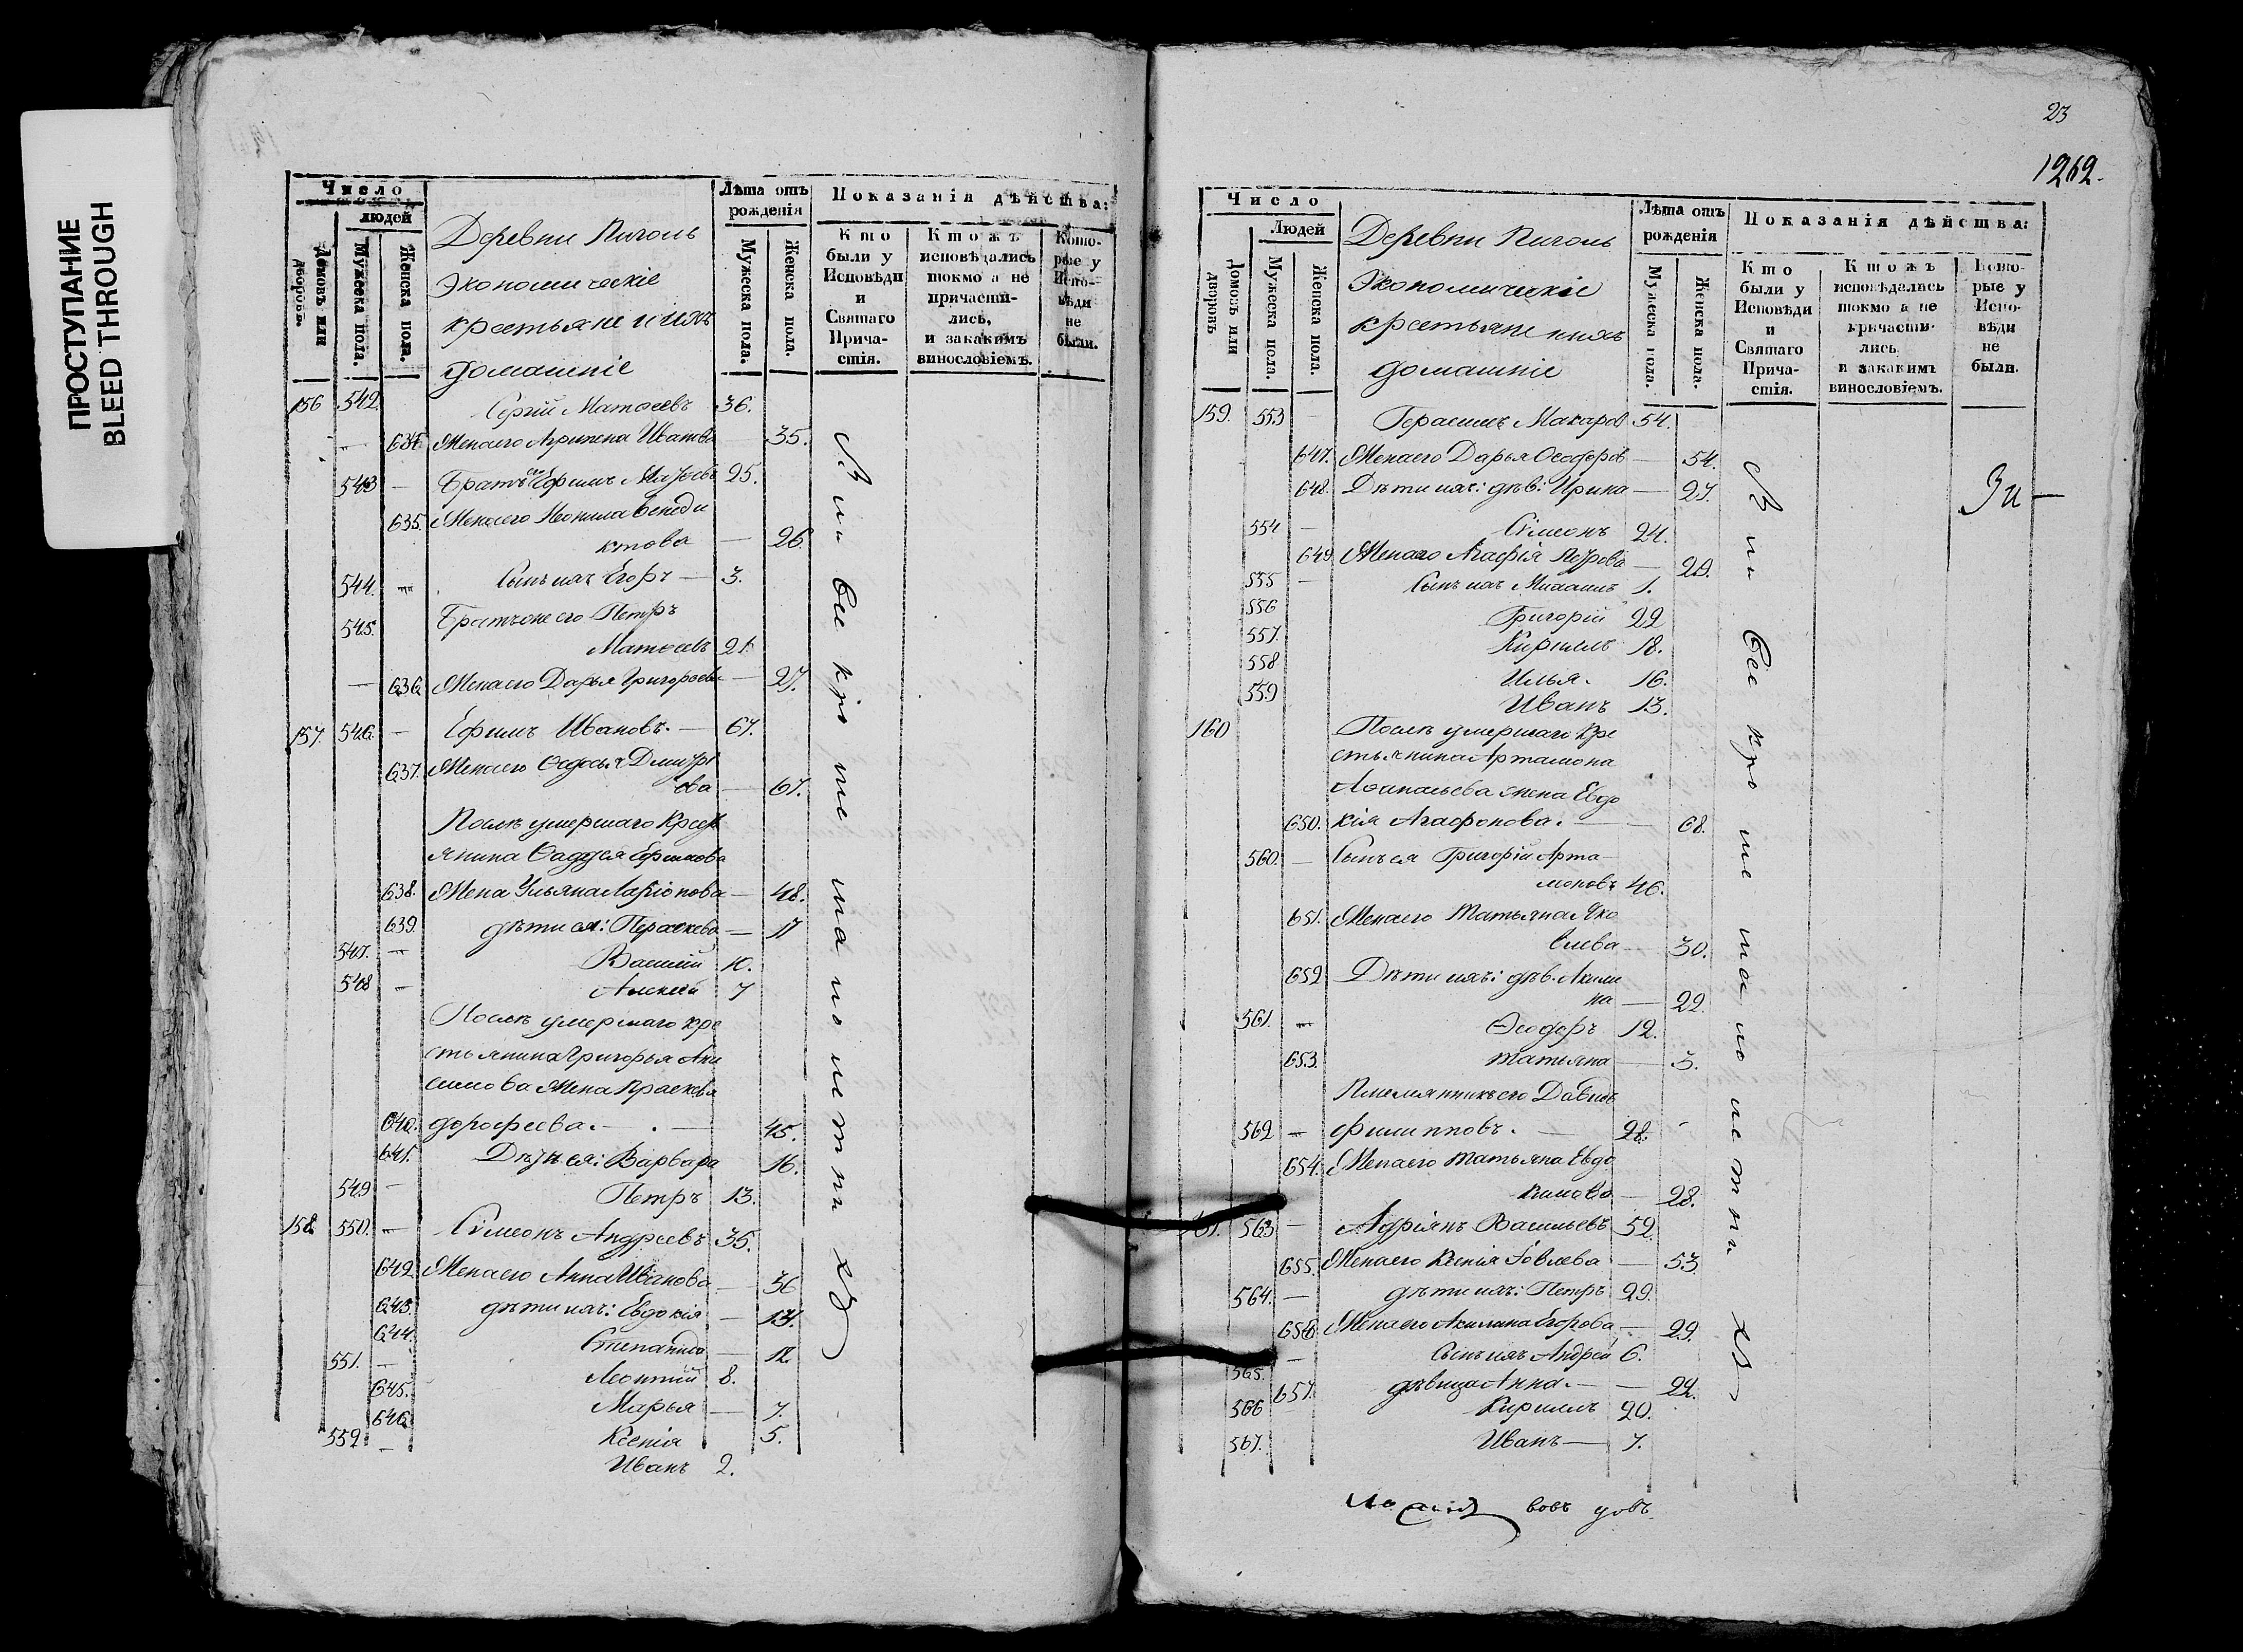 ПРОСТУПАНИЕ
BLEED THROUGH
Число
людей
Домовъ или дворовъ.
Мужеска пола.
Женска пола.
Деревни Пиголь
Экономическіе
крестьяне и ихъ
домашніе
Лѣта отъ рожденія
Мужеска пола.
Женска пола.
Показанія дѣйства:
Кто были у Исповѣди и Святаго Причастія.
Ктожъ исповѣдались токмо а не причастились, и закакимъ винословіемъ.
Которые у Исповѣди не были.
156 542 Сергій Матѳеевъ 36.
634 Жена его Агрипена Иванова — 35.
543 — Братъ его Ефимъ Матѳеевъ 25.
635. Жена его Неонила Венеди
ктова — 26
544. — Сынъ ихъ Егоръ — 3.
545. Братъ же его Петръ
Матѳеевъ 21.
— 636. Жена его Дарья Григорьева — 27.
157. 546. — Ефимъ Ивановъ. — 67.
637. Жена его Ѳедосья Дмитрі
ева — 67.
Послѣ умершаго крест
янина Ѳаддея Ефимова
638. Жена Ульяна Ларіонова — 48.
639. дѣти ея: Пераскева — 17
547. — Василій 10.
548 — Алексѣй 7
Послѣ умершаго кре
стьянина Григорья Аки
симова жена Праскевья
640. дорофеева. — 45.
641. Дѣти ея: Варвара 16.
549 — Петръ 13.
158. 550. — Сімеонъ Андреевъ 35.
642. Жена его Анна Иванова — 36
643. дѣти ихъ: Евдокія — 14.
644. Степанида — 12.
551. — Леонтій 8.
645. Марья — 7.
646. Ксенія 5.
552. — Иванъ 2.
23
1262.
Число
Людей
Домовъ или дворовъ
Мужеска пола.
Женска пола.
Деревни Пиголь
Экономическіе
крестьяне и ихъ
домашніе
Лѣта отъ рожденія
Мужеска пола.
Женска пола.
Показанія дѣйства:
Кто были у Исповѣди и Святаго Причастія.
Ктожъ исповѣдались токмо а не причастились и закакимъ винословіемъ.
Которые у Исповѣди не были.
159. 553 — Герасимъ Макаров 54.
647. Жена его Дарья Ѳеодоров — 54.
648. Дѣти ихъ: дѣв: Ирина — 27.
554 — Сімеонъ 24.
649 Жена его Агафія Петрова — 29.
555 — Сынъ ихъ Михаилъ 1.
556 Григорій 22
557. Кирилъ 18.
558 Илья. 16.
559 Иванъ 13.
160 Послѣ умершаго кре
стьянина Артамона
Аѳанасьева жена Евдо
650. кія Агафонова. — 68.
560. — Сынъ ея Григорій Арта
моновъ 46.
651. Жена его Татьяна Яко
влева — 30.
652 Дѣти ихъ: дѣв. Акили
на — 22.
561. — Ѳеодоръ 12.
653. татіяна — 3.
Племянникъ его Давидъ
562 — филипповъ. — 28.
654. Жена его татьяна Евдо
кимова — 28.
161. 563 — Адріянъ Васильевъ 52.
655. Жена его Ксенія Іовлева — 53.
564. — дѣти ихъ: Петръ 29.
656 Жена его Акилина Егорова — 29.
565. — Сынъ ихъ Андрей 6.
657. дѣвица Анна. — 22.
566 — Кирилъ 20.
567. Иванъ — 7.
вовъ